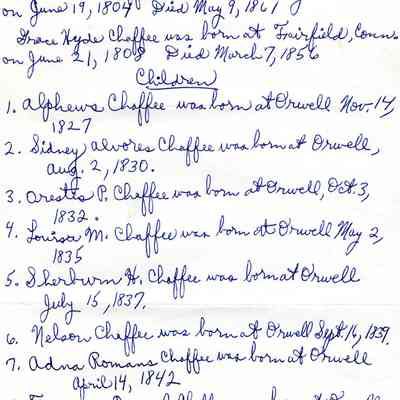 on June 19, 1804 Died May 9, 1861
Grace Hyde Chaffee was born at Fairfield, Conn
on June 21, 1808 Died March 7, 1856
Children
1. Alphews Chaffee was born at Orwell Nov. 14,
1827
2. Sidney Alvores Chaffee was born at Orwell,
Aug. 2, 1830.
3. Orestts P. Chaffee was born at Orwell, Oct. 3,
1832.
4. Louisa M. Chaffee was born at Orwell May 2,
1835
5. Sherburn H. Chaffee was born at Orwell
July 15, 1837.
6. Nelson Chaffee was born at Orwell Sept. 16, 1839.
7. Adna Romans Chaffee was born at Orwell
April 14, 1842